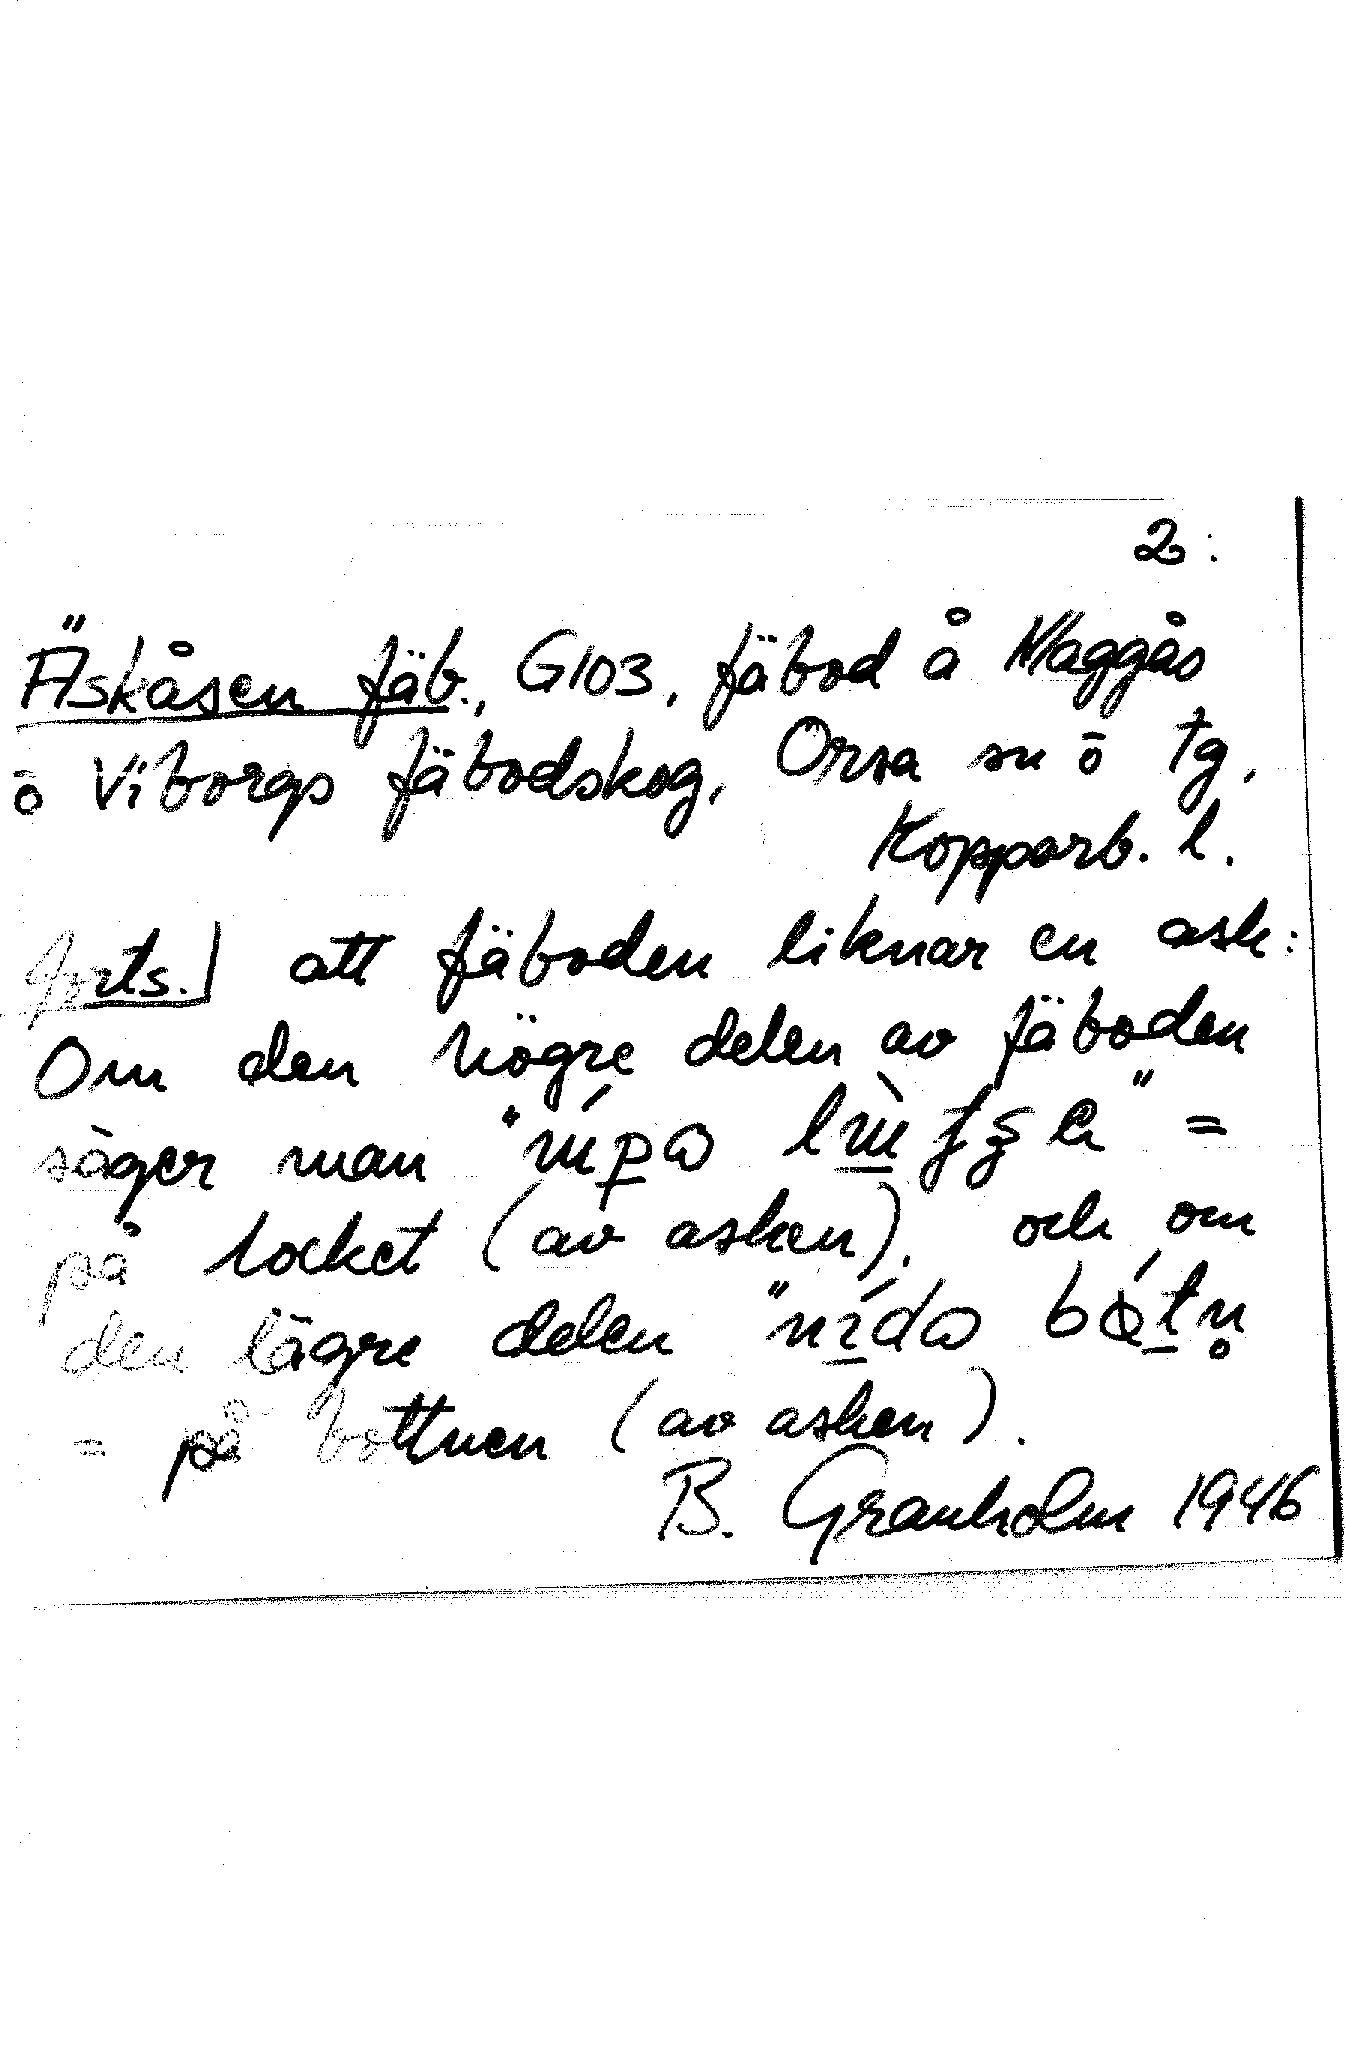 2.
Äskåsen fäb., G103, fäbod å Maggås
o Viborgs fäbodskog, Orsa sn o tg,
Kopparb. l.
forts.] att fäboden liknar en ask:
Om den högre delen av fäboden
säger man =
på locket (av asken). och om
den lägre delen
= på bottnen (av asken).
B. Granholm 1946